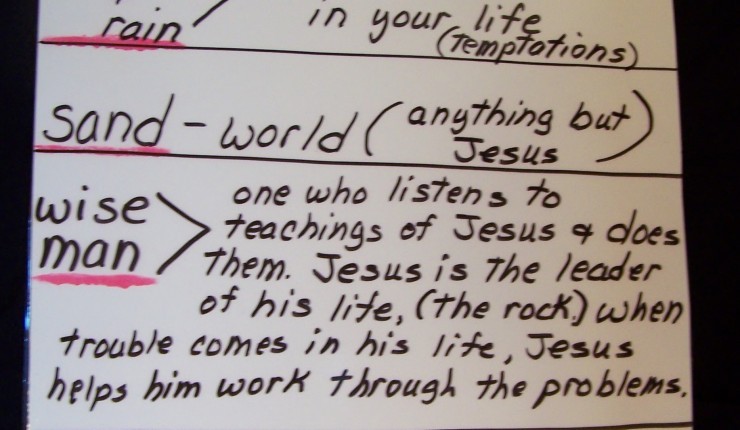 rain / in your life
(Temptations)
sand - world (anything but
Jesus)
wise > one who listens to
man teachings of Jesus & does
them. Jesus is the leader
of his life, (the rock.) when
trouble comes in his life, Jesus
helps him work through the problems.